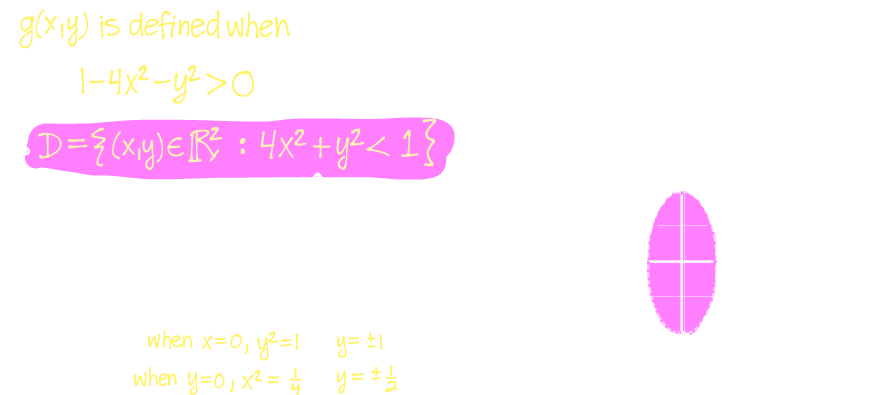 g(x,y) is defined when
1-4x²-y²>0
D={(x,y)∈ℝ² : 4x²+y²< 1}
when x=0, y²=1 y= ±1
when y=0, x²= 1/4 y= ±1/2